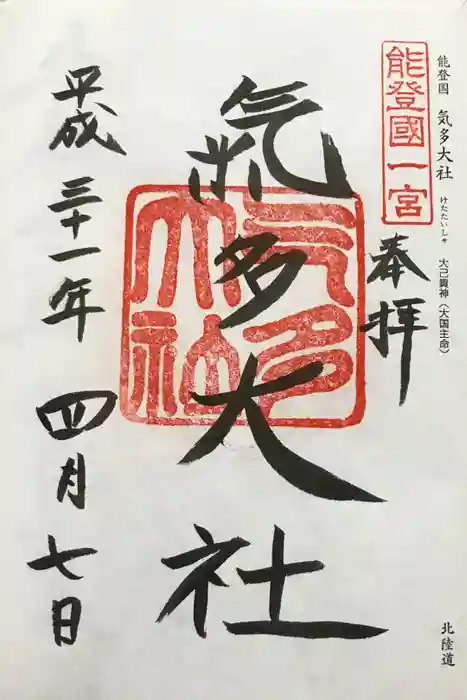 能登国 気多大社 けたたいしゃ 大己貴神(大国主命) 北陸道
能登國一宮
奉拝
氣多大社
気多大社
平成三十一年 四月七日